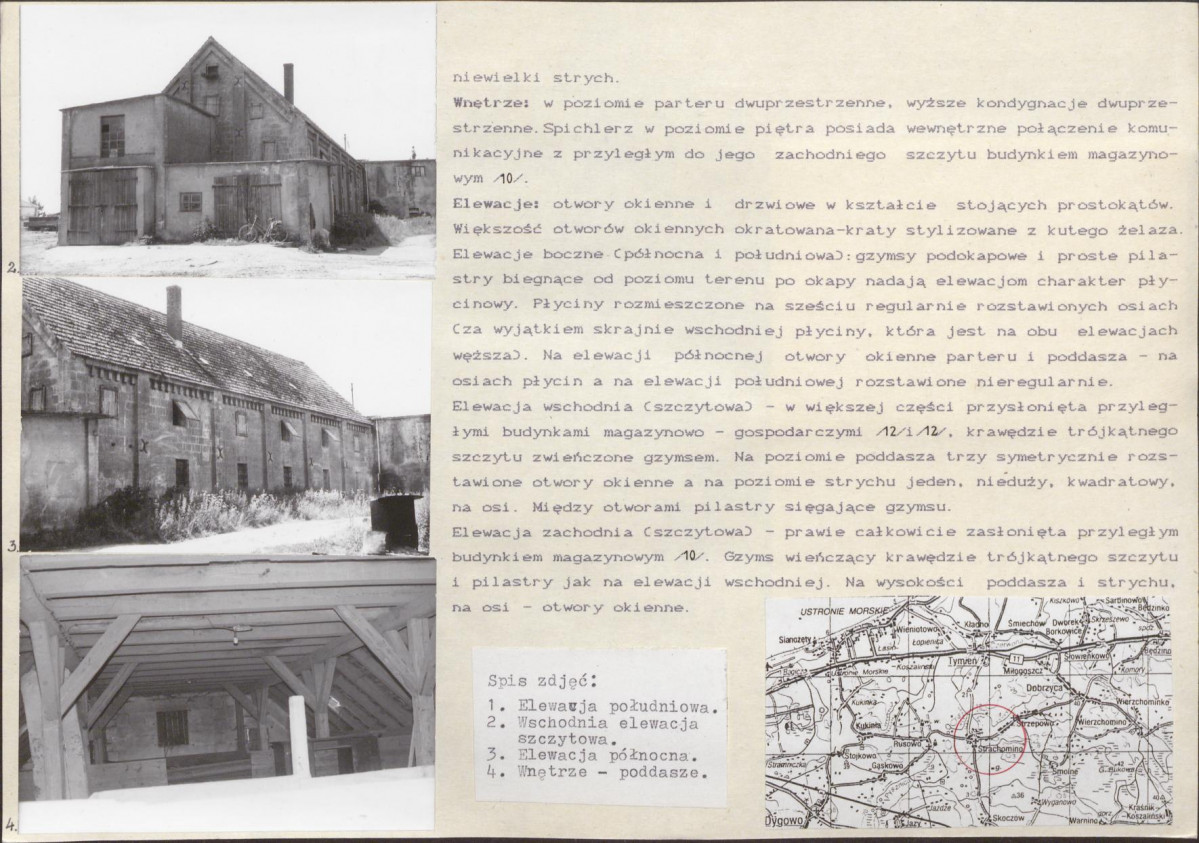 niewielki strych.
Wnętrze: w poziomie parteru dwuprzestrzenne, wyższe kondygnacje dwuprze-
strzenne.Spichlerz w poziomie piętra posiada wewnętrzne połączenie komu-
nikacyjne z przyległym do jego zachodniego szczytu budynkiem magazyno-
wym /10/.
Elewacje: otwory okienne i drzwiowe w kształcie stojących prostokątów.
Większość otworów okiennych okratowana-kraty stylizowane z kutego żelaza.
Elewacje boczne (północna i południowa):gzymsy podokapowe i proste pila-
stry biegnące od poziomu terenu po okapy nadają elewacjom charakter pły-
cinowy. Płyciny rozmieszczone na sześciu regularnie rozstawionych osiach
(za wyjątkiem skrajnie wschodniej płyciny, która jest na obu elewacjach
węższa). Na elewacji północnej otwory okienne parteru i poddasza - na
osiach płycin a na elewacji południowej rozstawione nieregularnie.
Elewacja wschodnia (szczytowa) - w większej części przysłonięta przyleg-
łymi budynkami magazynowo - gospodarczymi /12/i/12/, krawędzie trójkątnego
szczytu zwieńczone gzymsem. Na poziomie poddasza trzy symetrycznie rozs-
tawione otwory okienne a na poziomie strychu jeden, nieduży, kwadratowy,
na osi. Między otworami pilastry sięgające gzymsu.
Elewacja zachodnia (szczytowa) - prawie całkowicie zasłonięta przyległym
budynkiem magazynowym /10/. Gzyms wieńczący krawędzie trójkątnego szczytu
i pilastry jak na elewacji wschodniej. Na wysokości poddasza i strychu,
na osi - otwory okienne.
2.
3.
4.
Spis zdjęć:
1. Elewacja południowa.
2. Wschodnia elewacja
szczytowa.
3. Elewacja północna.
4. Wnętrze - poddasze.
USTRONIE MORSKIE
Kiszkowo
Sarbinowo
Będzinko
Sianożęty
Wieniotowo
Kładno
Śmiechów
Dworek
Borkowice
Skrzeszewo
Łasin
Łopienica
Tymień
11
Miłogoszcz
Słowienkowo
Będzino
Bagicz
Ustronie Morskie
Komory
Kukinka
Dobrzyca
Wierzchominko
Kukinia
Strzepowo
Wierzchomino
Rusowo
Strachomino
Stojkowo
Stramniczka
Gąskowo
Smolne
G. Bukowa
Jażdże
36
Wyganowo
Kraśnik-
Koszaliński
Dygowo
Jazy
Skoczów
Warnino